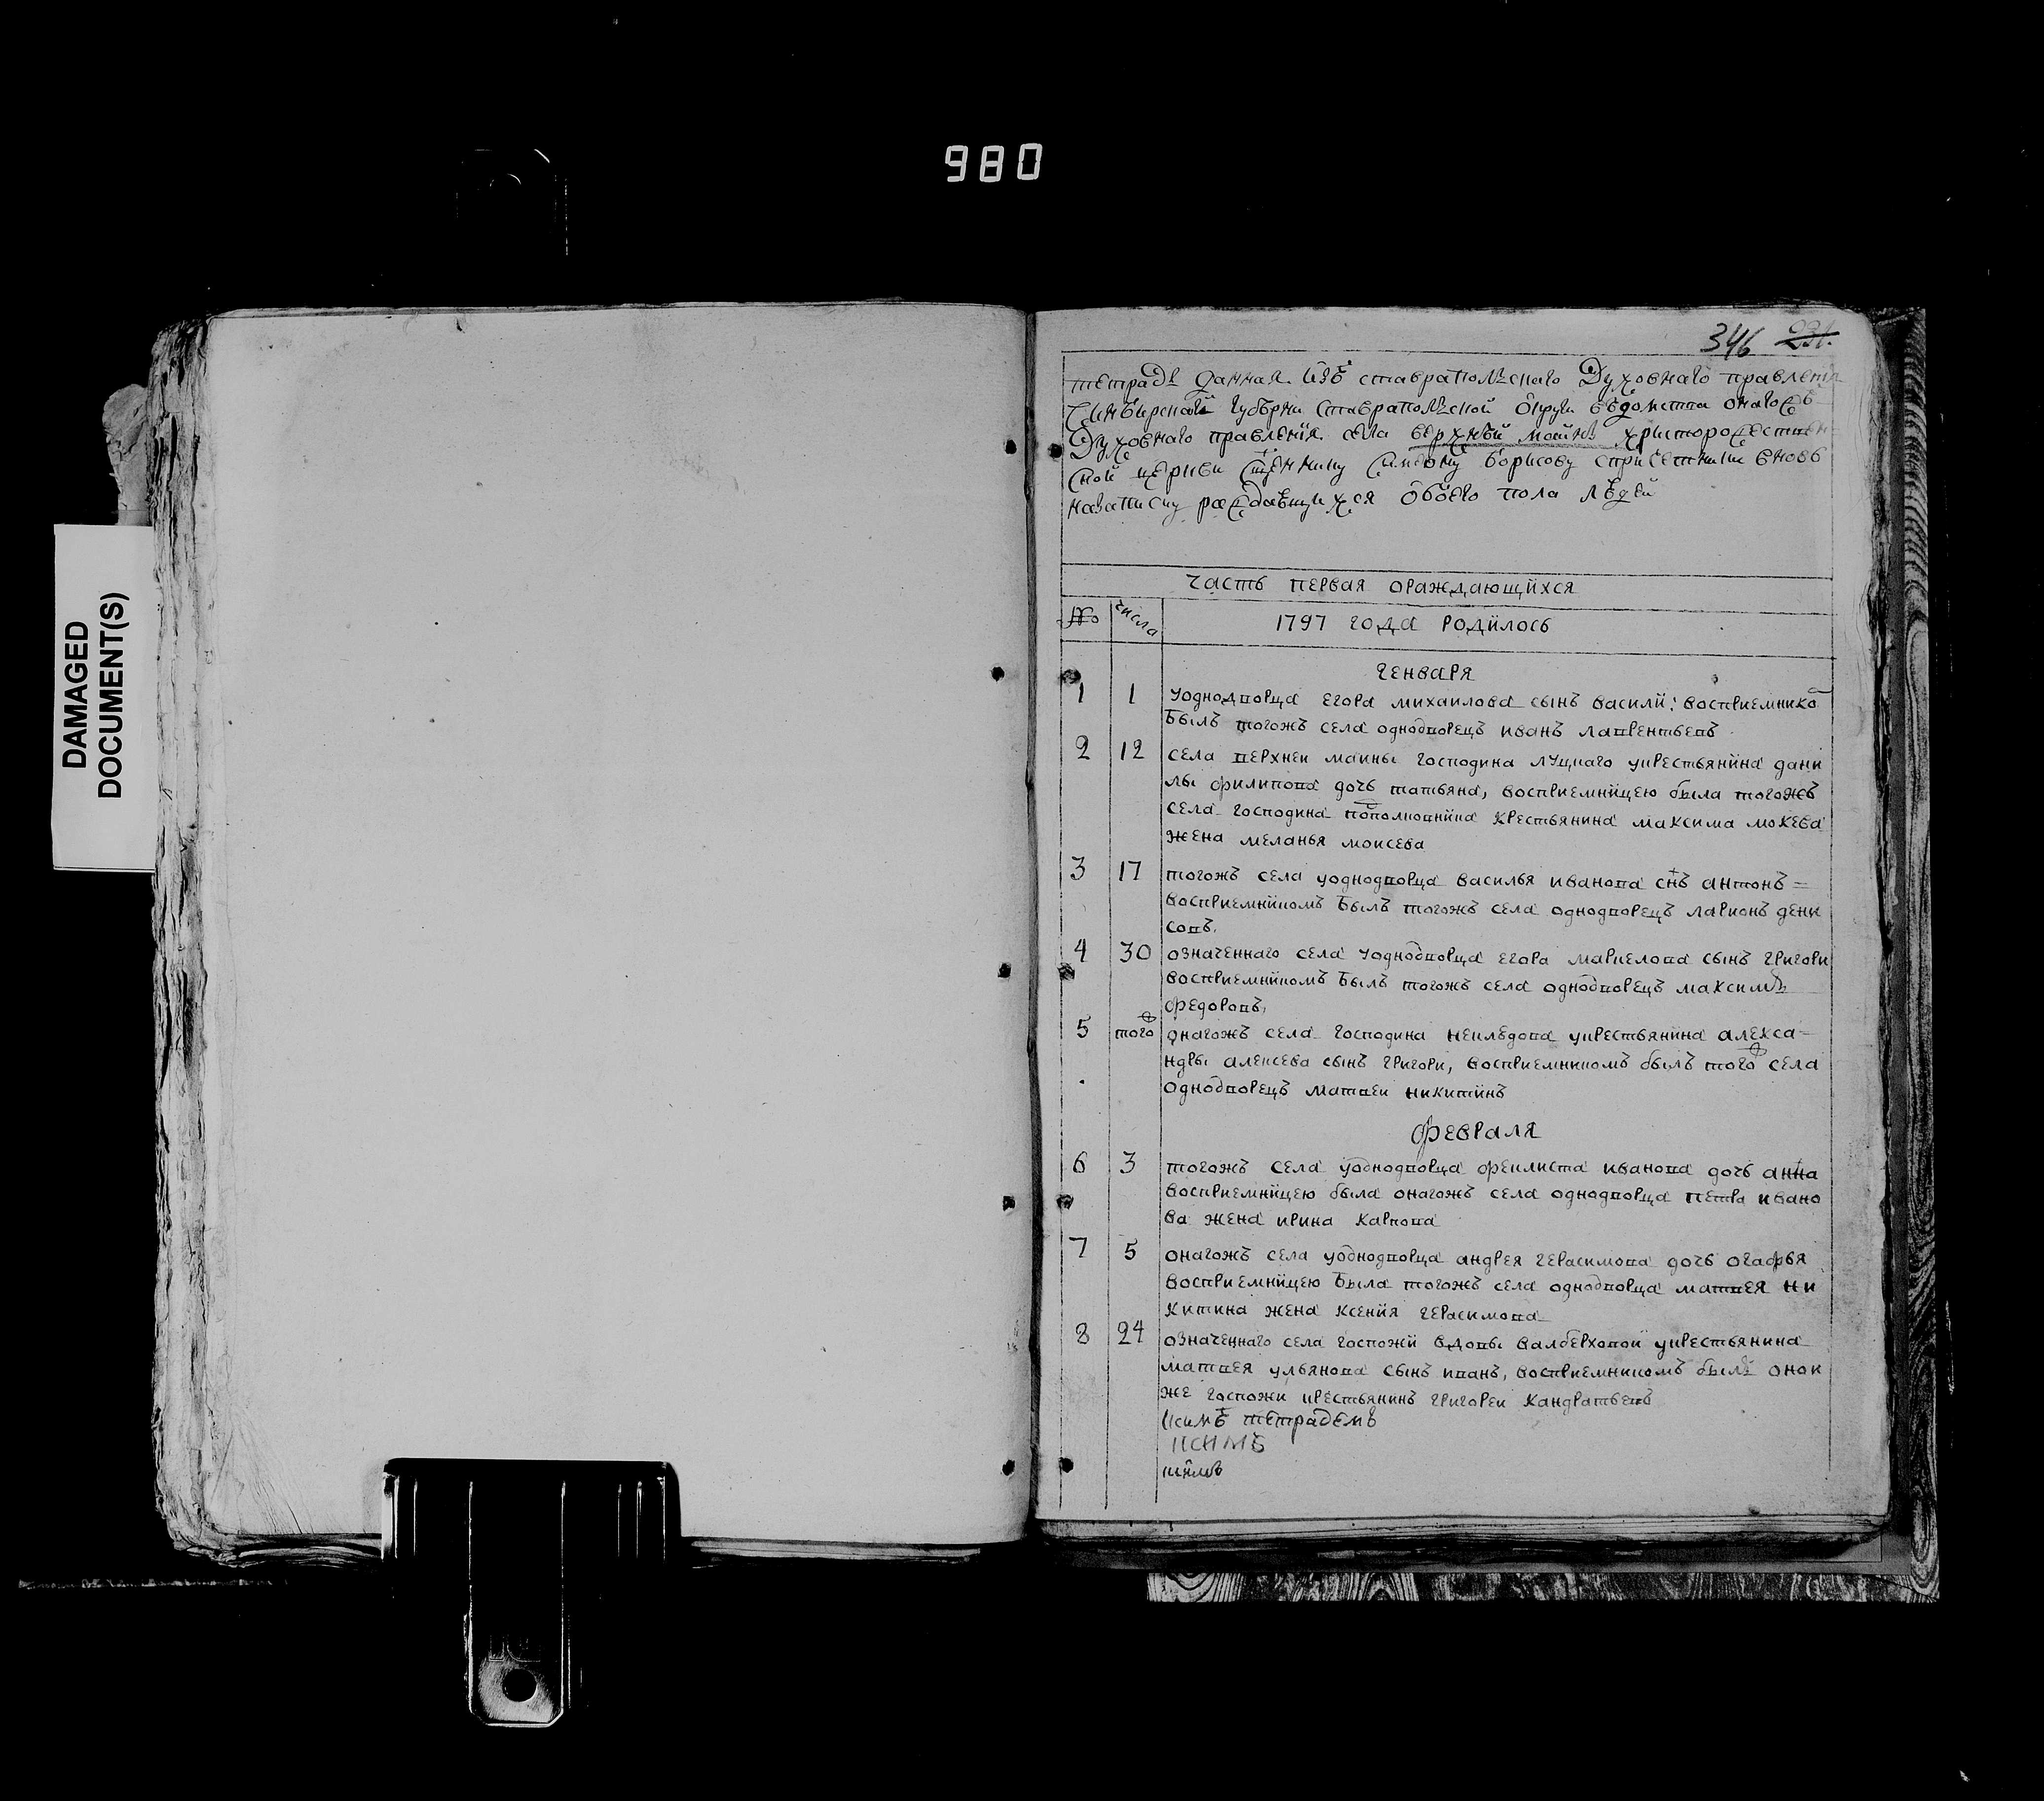 980
DAMAGED
DOCUMENT(S)
346 231.
тетрадь данная изъ ставропольскаго Духовнаго правления
Синбирской губерни ставропольской округи ведомства онагожъ
Духовнаго правления села верхней маины христорождествен=
ской церкви сщеннику Симеону борисову спричетники вновь
назаписку рождавшихся обоего пола людей
часть первая ораждающихся
№ числа 1797 года родилось
генваря
1 1 уоднодворца егора михаилова сынъ васили: восприемнико
былъ тогожъ села однодворецъ иванъ лаврентьевъ
2 12 села верхнеи маины господина луцкаго украстьянина дани
лы филипова дочь татьяна, восприемницею была тогожъ
села господина крестьянина максима мокева
жена меланья моисева
3 17 тогожъ села уоднодворца василья иванова снъ антонъ =
восприемникомъ былъ тогожъ села однодворецъ ларионъ дени
совъ.
4 30 означеннаго села уоднодворца егора маркелова сынъ григори
восприемникомъ былъ тогожъ села однодворецъ максимъ
федоровъ,
5 тогож онагожъ села господина неклюдова укрестьянина алекса=
ндры алексева сынъ григори, восприемникомъ былъ тогож села
однодворецъ матвеи никитинъ
февраля
6 3 тогожъ села уоднодворца феклиста иванова дочь анна
восприемницею была онагожъ села однодворца петра ивано
ва жена ирина карпова
7 5 онагожъ села уоднодворца андрея герасимова дочь огафья
восприемницею была тогожъ села однодворца матвея ни
китина жена ксения герасимова
8 24 означеннаго села госпожи вдовы валберховой укрестьянина
матвея ульянова сынъ иванъ, восприемникомъ былъ онои
же госпожи крестьянинъ григореи кандратьевъ
тетрадемъ